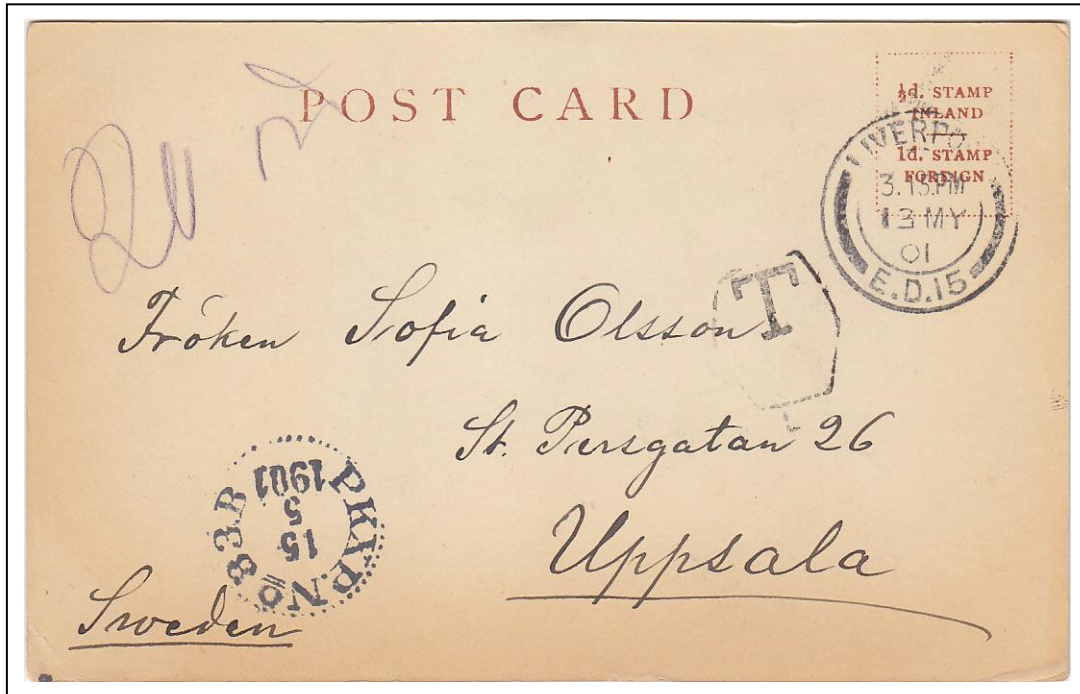 POST CARD
½d. STAMP
INLAND
1d. STAMP
FOREIGN
LIVERPO
3.15.PM
13 MY
01
E.D.15
T
Fröken Sofia Olsson
St. Persgatan 26
Uppsala
Sweden
PKXP.No 83.B
15
5
1901